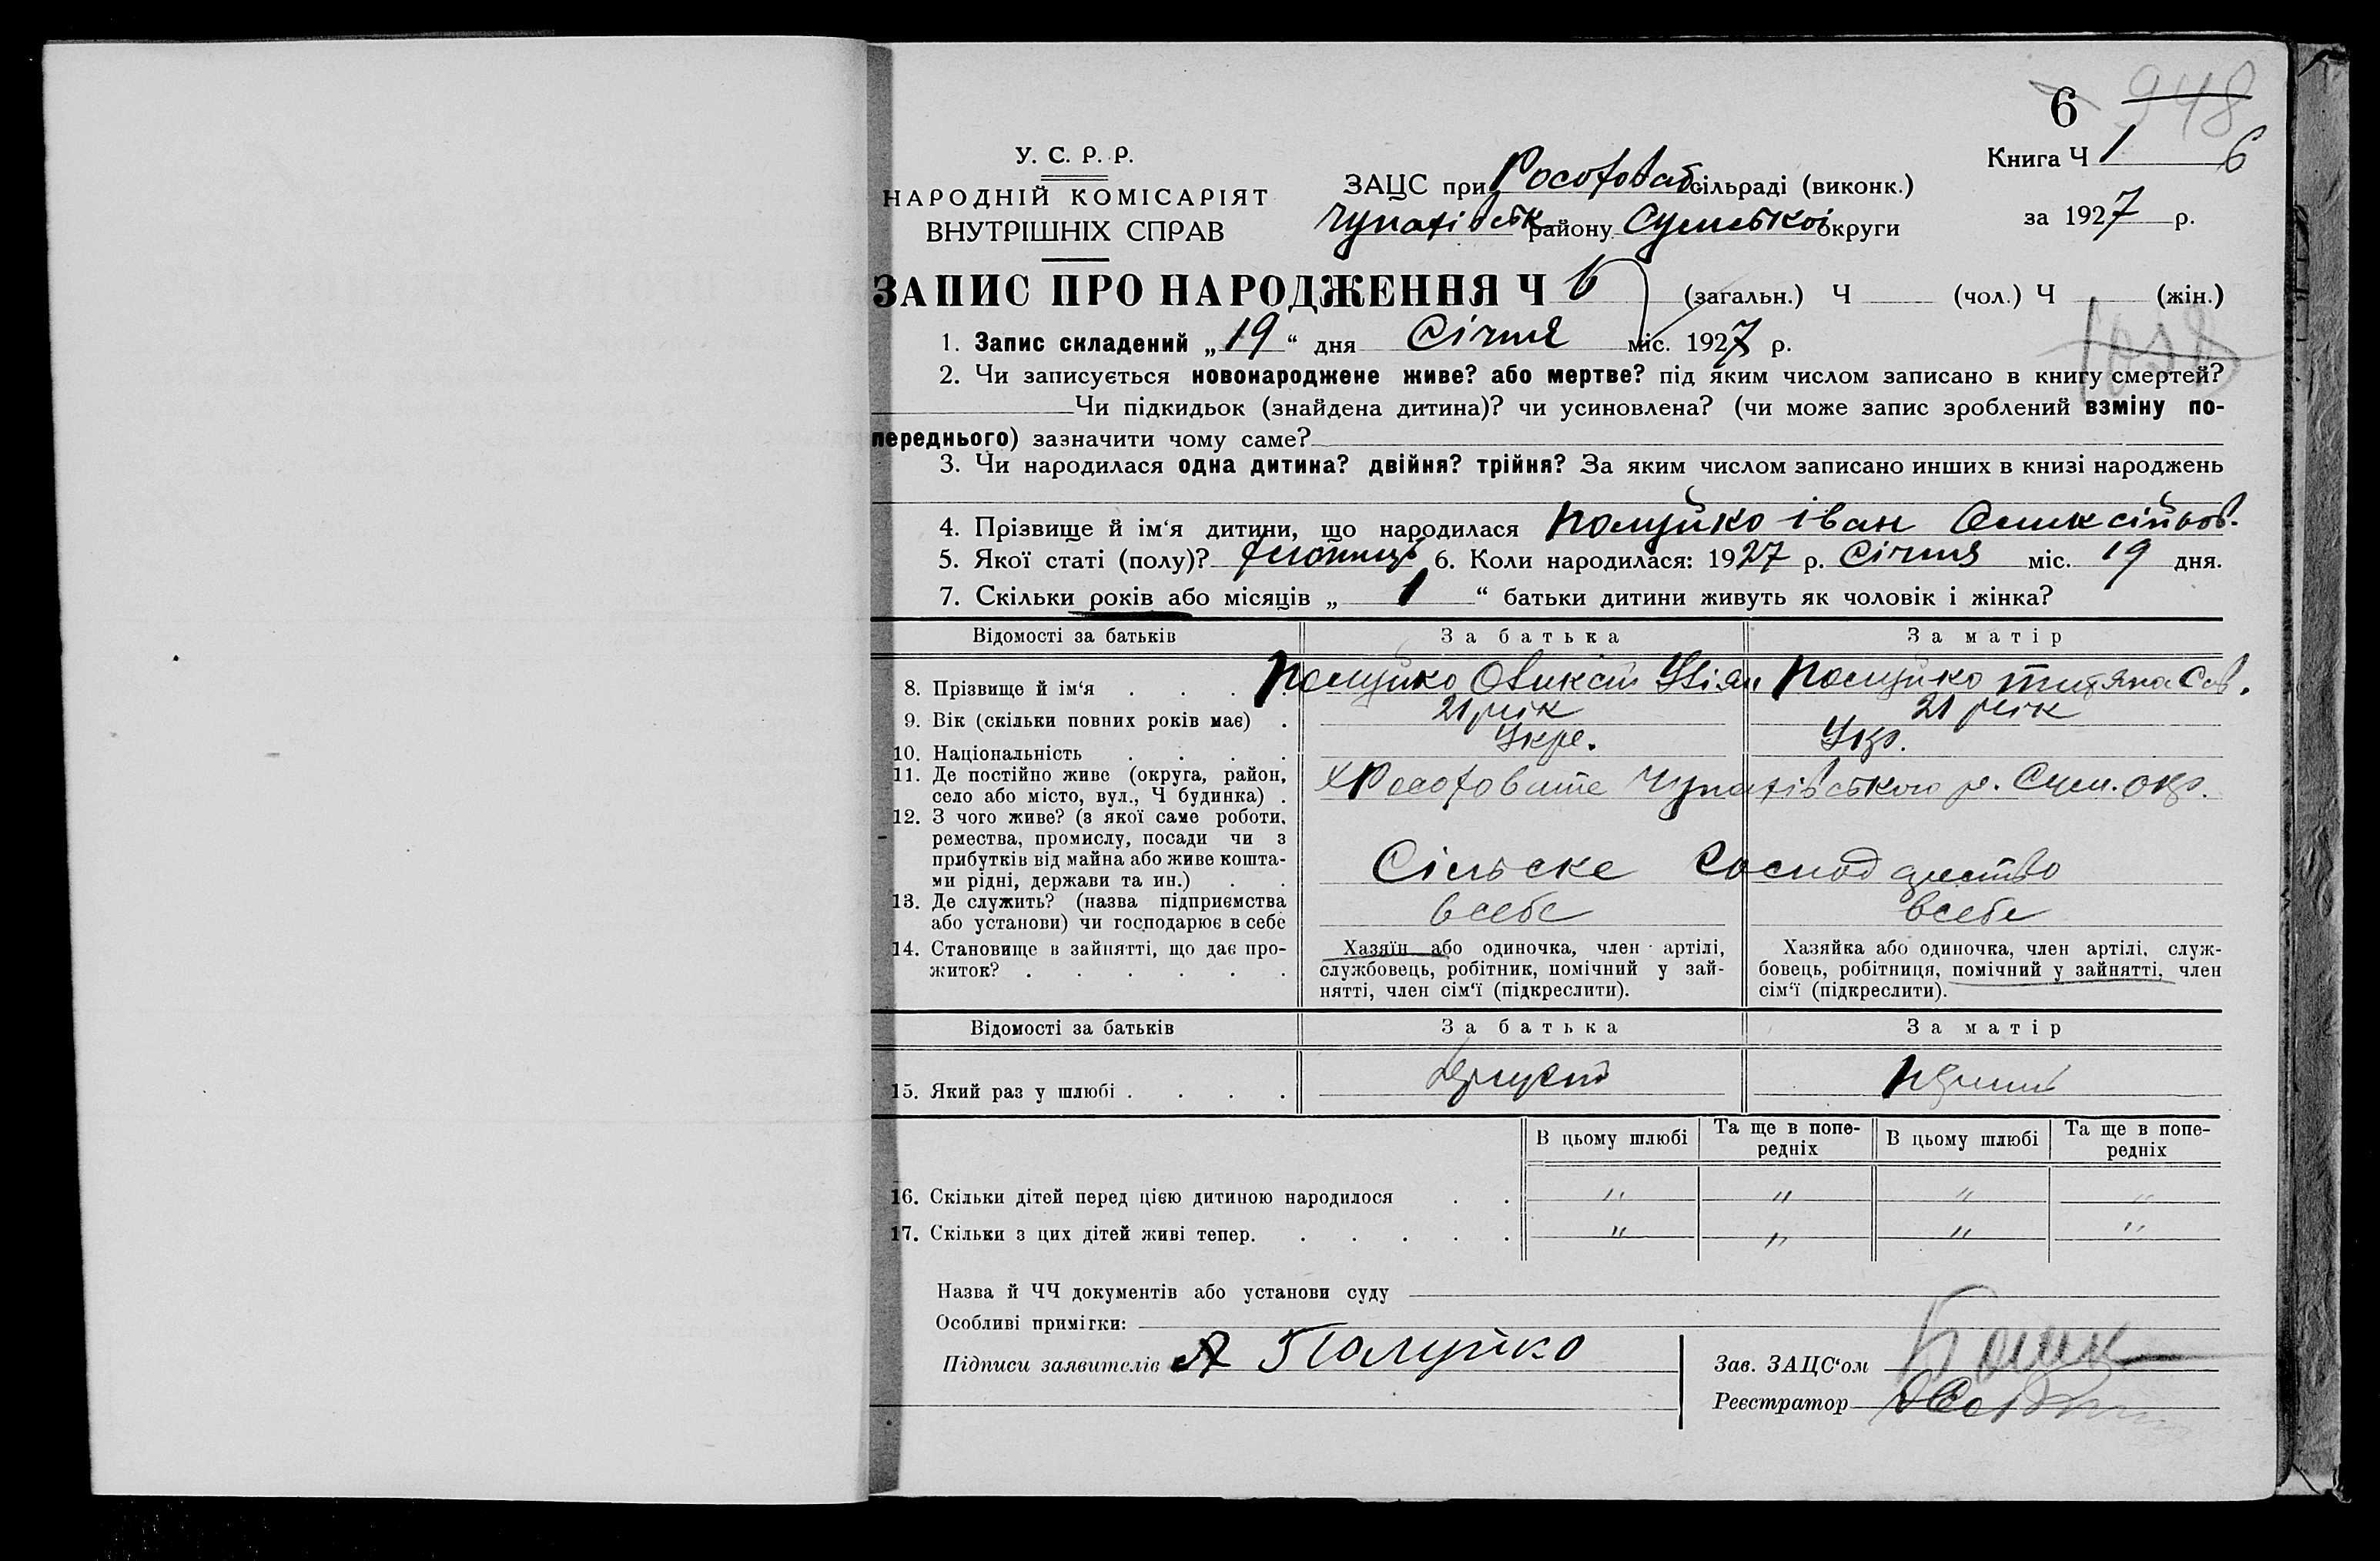 6 948
Книга Ч 1 6
У. С. Р. Р.
НАРОДНІЙ КОМІСАРІЯТ
ВНУТРІШНІХ СПРАВ
ЗАЦС при сільраді (виконк.)
району Сумської округи
за 1927 р.
ЗАПИС ПРО НАРОДЖЕННЯ Ч 6 (загальн.) Ч (чол.) Ч (жін.)
1. Запис складений „ 19 “ дня Січня міс. 1927 р.
2. Чи записується новонароджене живе? або мертве? під яким числом записано в книгу смертей?
Чи підкидьок (знайдена дитина)? чи усиновлена? (чи може запис зроблений взміну по-
переднього) зазначити чому саме?
3. Чи народилася одна дитина? двійня? трійня? За яким числом записано инших в книзі народжень
4. Прізвище й ім‘я дитини, що народилася Полуйко Іван
5. Якої статі (полу)? 6. Коли народилася: 1927 р. Січня міс. 19 дня.
7. Скільки років або місяців „ 1 “ батьки дитини живуть як чоловік і жінка?
Відомості за батьків За батька За матір
8. Прізвище й ім‘я . . . . Полуйко Полуйко
9. Вік (скільки повних років має) . 21 рік 21 рік
10. Національність . . . . Укр. Укр.
11. Де постійно живе (округа, район,
село або місто, вул., Ч будинка) . Сум. окр.
12. З чого живе? (з якої саме роботи,
ремества, промислу, посади чи з
прибутків від майна або живе кошта-
ми рідні, держави та ин.) . . Сільске
13. Де служить? (назва підприємства
або установи) чи господарює в себе всебе всебе
14. Становище в зайнятті, що дає про-
житок? . . . . . .
Хазяїн або одиночка, член артілі,
службовець, робітник, помічний у зай-
нятті, член сім‘ї (підкреслити).
Хазяйка або одиночка, член артілі, служ-
бовець, робітниця, помічний у зайнятті, член
сім‘ї (підкреслити).
Відомості за батьків За батька За матір
15. Який раз у шлюбі . . . .
В цьому шлюбі Та ще в попе-
редніх В цьому шлюбі Та ще в попе-
редніх
16. Скільки дітей перед цією дитиною народилося . . " " " "
17. Скільки з цих дітей живі тепер. . . . . . " " " "
Назва й ЧЧ документів або установи суду
Особливі примітки:
Підписи заявителів А Полуйко
Зав. ЗАЦС‘ом
Реєстратор